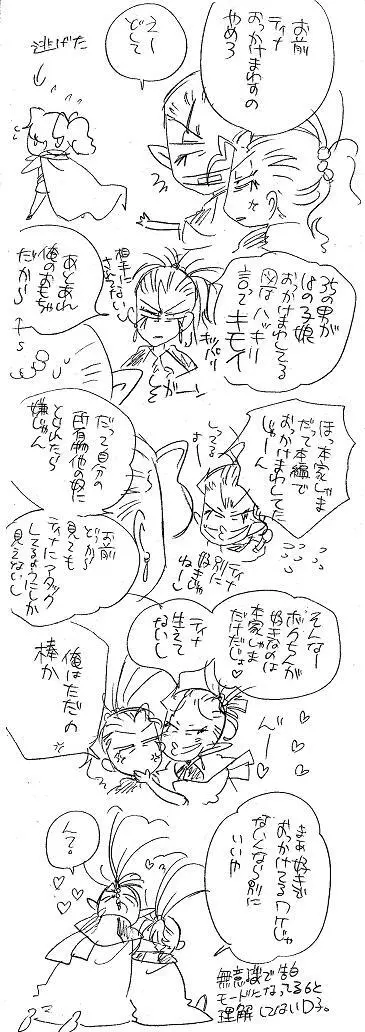 お前
ティナ
おっかけまわすの
やめろ
えー
どして
逃げた
35の男が
18の子娘
おっかけまわしてる
図はハッキリ
言ってキモイ
キッパリ
ガーン
相手にない
あとあれ
俺のおもちゃ
だから
ほっ本家しゃま
だって本編で
おっかけまわして
じゃーん
してる
よー
別に
ティナ
好きに
ねーし
だって自分の
所有物他の奴に
とられたら
嫌じゃん
お前
どっから
見ても
ティナにアタック
してるようにしか
見えないし
そんなー
ボクちんが
好きなのは
本家しゃま
だけだじょ♥
ティナ
生えて
ないし
俺はただの
棒か
んー
まぁ好きで
おっかけてるワケじゃ
ないんなら別に
いいや
んで。
無意識で告白
モードになってる6と
理解してないD子。